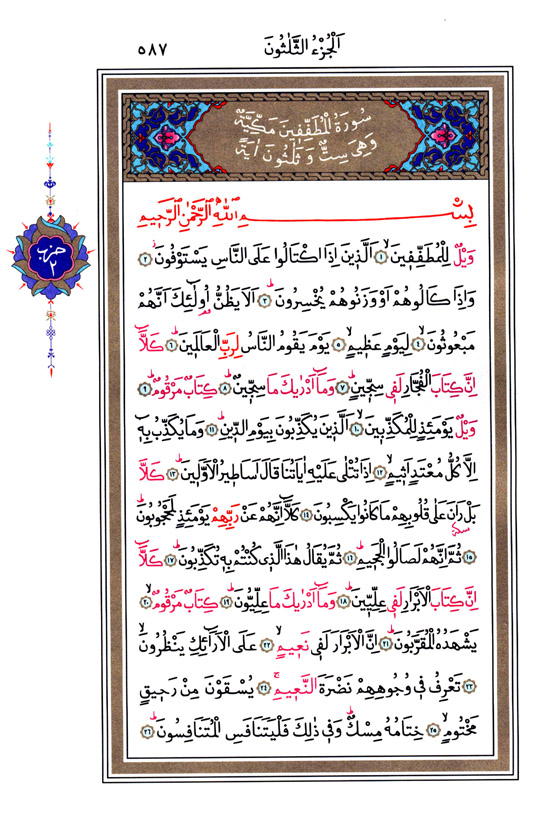 اَلْجُزْءُ الثَّلٰثُونَ
٥٨٧
سُورَةُ الْمُطَفِّفِينَ مَكِّيَّةٌ
وَهِيَ سِتٌّ وَ ثَلٰثُونَ اٰيَةً
حزب
٢
بِسْمِ اللّٰهِ الرَّحْمٰنِ الرَّحِيمِ
وَيْلٌ لِلْمُطَفِّفِينَۙ ﴿١﴾ اَلَّذِينَ اِذَا اكْتَالُوا عَلَى النَّاسِ يَسْتَوْفُونَۘ ﴿٢﴾
وَاِذَا كَالُوهُمْ اَوْ وَزَنُوهُمْ يُخْسِرُونَۜ ﴿٣﴾ اَلَا يَظُنُّ اُو۬لٰٓئِكَ اَنَّهُمْ
مَبْعُوثُونَۙ ﴿٤﴾ لِيَوْمٍ عَظِيمٍۙ ﴿٥﴾ يَوْمَ يَقُومُ النَّاسُ لِرَبِّ الْعَالَمِينَۜ ﴿٦﴾ كَلَّٓا
اِنَّ كِتَابَ الْفُجَّارِ لَفِي سِجِّينٍۜ ﴿٧﴾ وَمَٓا اَدْرٰيكَ مَا سِجِّينٌۜ ﴿٨﴾ كِتَابٌ مَرْقُومٌۜ ﴿٩﴾
وَيْلٌ يَوْمَئِذٍ لِلْمُكَذِّبِينَۙ ﴿١٠﴾ اَلَّذِينَ يُكَذِّبُونَ بِيَوْمِ الدِّينِۜ ﴿١١﴾ وَمَا يُكَذِّبُ بِهٖٓ
اِلَّا كُلُّ مُعْتَدٍ اَثِيمٍۙ ﴿١٢﴾ اِذَا تُتْلٰى عَلَيْهِ اٰيَاتُنَا قَالَ اَسَاطِيرُ الْاَوَّلِينَۜ ﴿١٣﴾ كَلَّا
بَلْ رَانَ عَلٰى قُلُوبِهِمْ مَا كَانُوا يَكْسِبُونَ ﴿١٤﴾ كَلَّٓا اِنَّهُمْ عَنْ رَبِّهِمْ يَوْمَئِذٍ لَمَحْجُوبُونَۜ
﴿١٥﴾ ثُمَّ اِنَّهُمْ لَصَالُوا الْجَحِيمِۜ ﴿١٦﴾ ثُمَّ يُقَالُ هٰذَا الَّذِي كُنْتُمْ بِهٖ تُكَذِّبُونَۜ ﴿١٧﴾ كَلَّٓا
اِنَّ كِتَابَ الْاَبْرَارِ لَفِي عِلِّيِّينَۜ ﴿١٨﴾ وَمَٓا اَدْرٰيكَ مَا عِلِّيُّونَۜ ﴿١٩﴾ كِتَابٌ مَرْقُومٌۙ ﴿٢٠﴾
يَشْهَدُهُ الْمُقَرَّبُونَۜ ﴿٢١﴾ اِنَّ الْاَبْرَارَ لَفِي نَعِيمٍۙ ﴿٢٢﴾ عَلَى الْاَرَٓائِكِ يَنْظُرُونَۙ
﴿٢٣﴾ تَعْرِفُ فِي وُجُوهِهِمْ نَضْرَةَ النَّعِيمِۚ ﴿٢٤﴾ يُسْقَوْنَ مِنْ رَحِيقٍ
مَخْتُومٍۙ ﴿٢٥﴾ خِتَامُهُ مِسْكٌۜ وَفِي ذٰلِكَ فَلْيَتَنَافَسِ الْمُتَنَافِسُونَۜ ﴿٢٦﴾